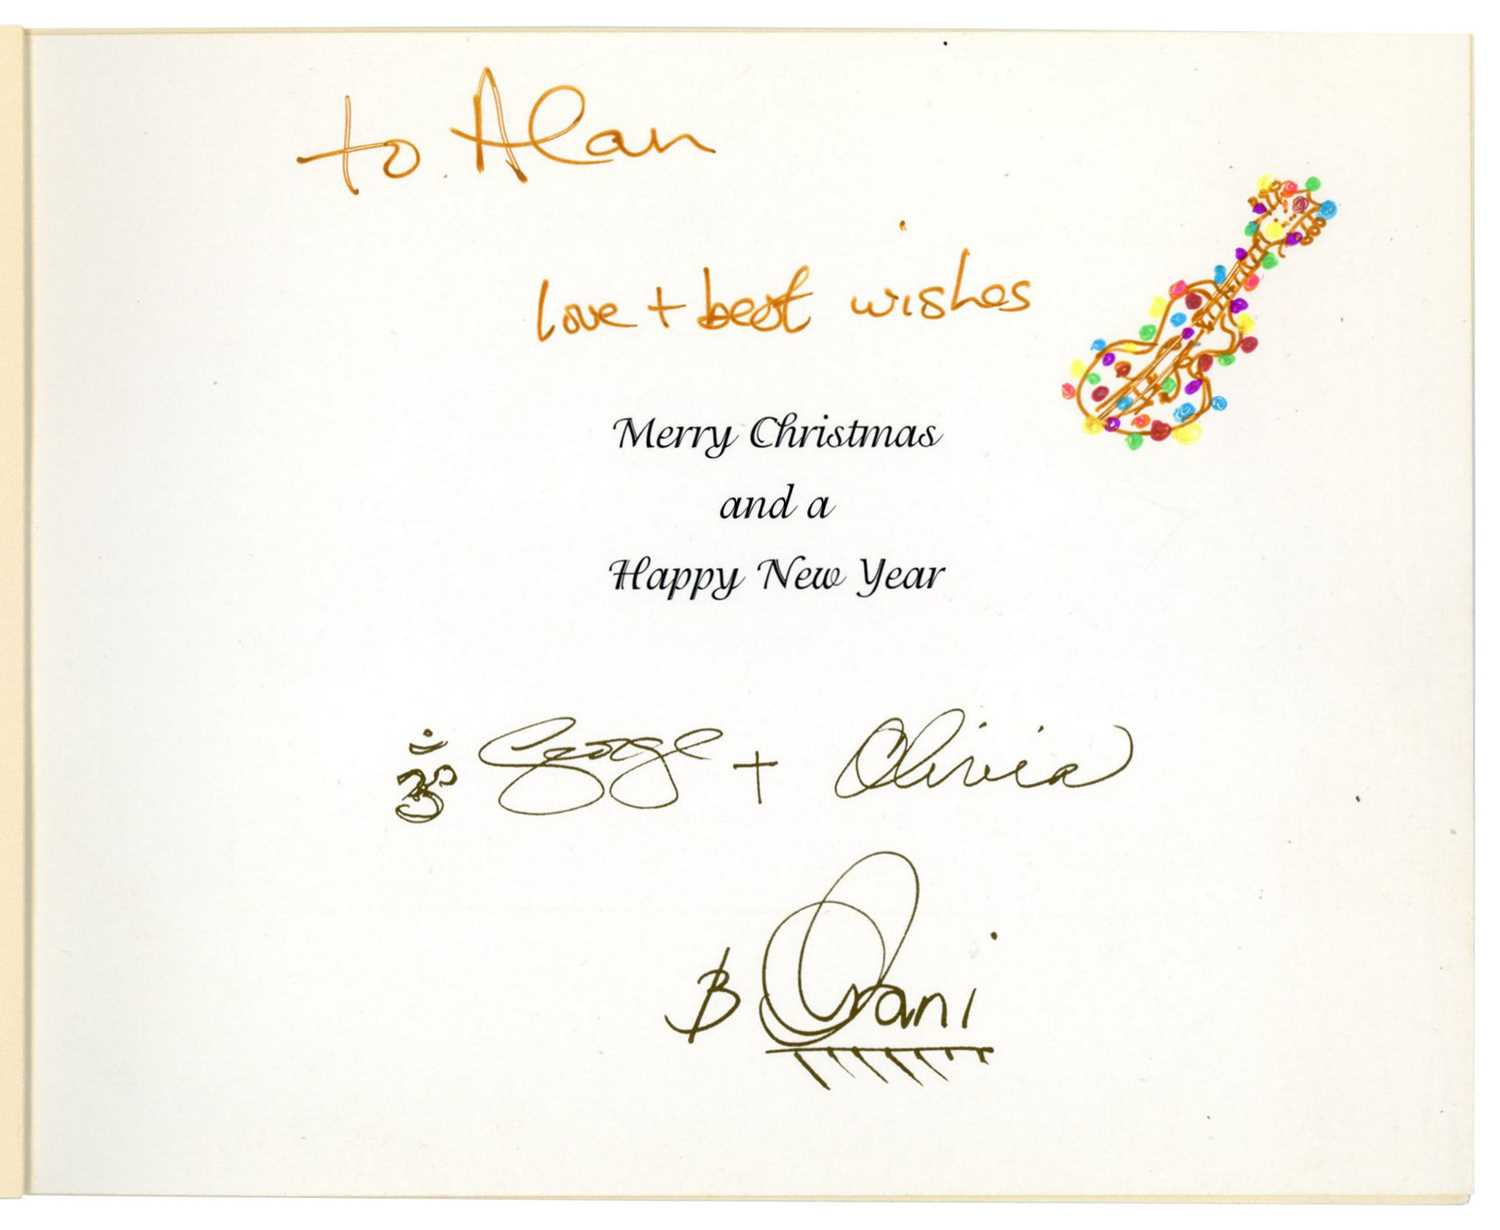 to Alan
love + best wishes
Merry Christmas
and a
Happy New Year
ॐ George + Olivia
Dhani